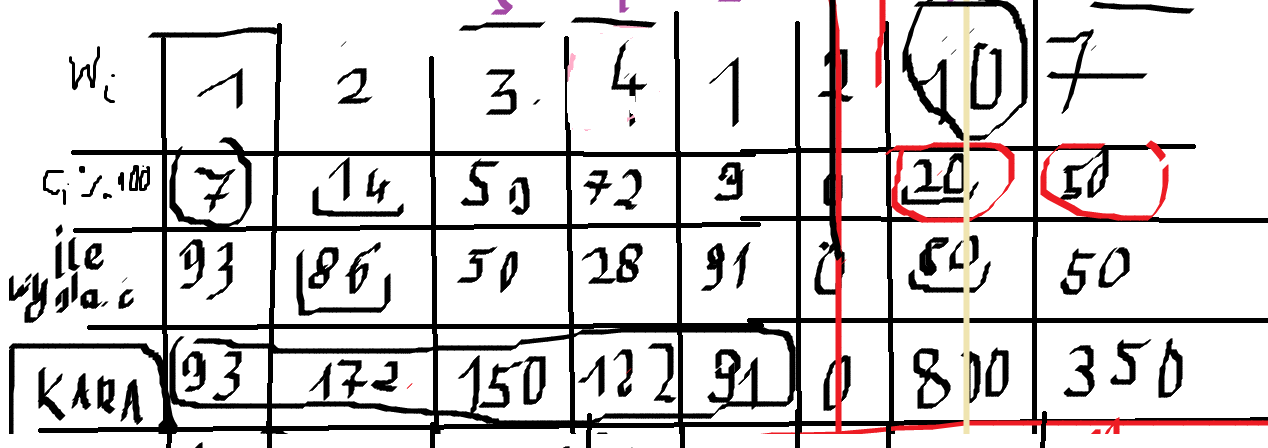 Wi 1 2 3 4 1 2 10 7
Ci % 100 7 14 50 72 9 0 20 50
ile wypłac 93 86 50 28 91 0 80 50
KARA 93 172 150 122 91 0 800 350